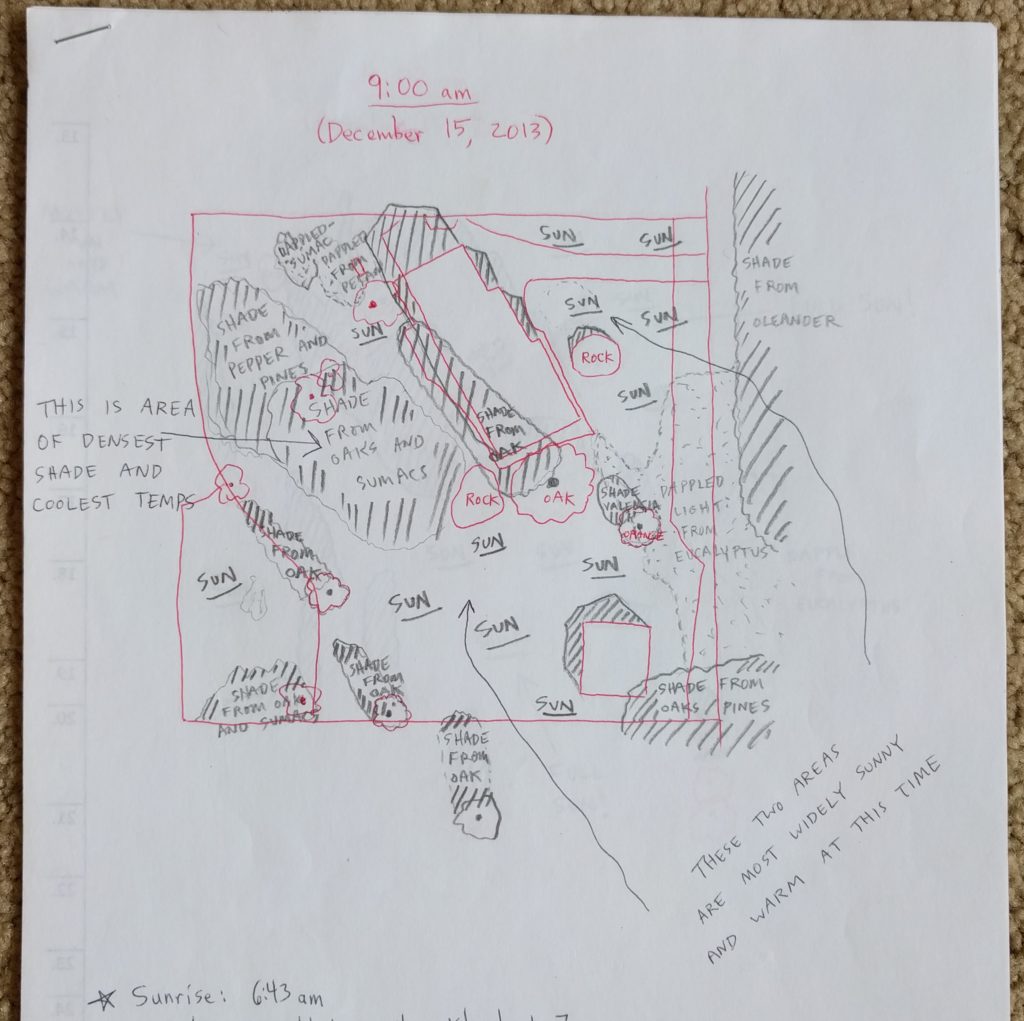 9:00 am
(December 15, 2013)
SUN
SUN
DAPPLED-
SUMAC
DAPPLED
FROM
SHADE
FROM
OLEANDER
SUN
SUN
SUN
ROCK
SHADE
FROM
PEPPER AND
PINES
SUN
SHADE
FROM
OAKS AND
SUMACS
SHADE
FROM
OAK
THIS IS AREA
OF DENSEST
SHADE AND
COOLEST TEMPS
ROCK
OAK
SHADE
VALENCIA
ORANGE
DAPPLED
LIGHT
FROM
EUCALYPTUS
SHADE
FROM
OAK
SUN
SUN
SUN
SUN
SUN
SHADE
FROM OAK
AND SUMACS
SHADE
FROM
OAK
SHADE
FROM
OAK
SUN
SHADE FROM
OAKS / PINES
THESE TWO AREAS
ARE MOST WIDELY SUNNY
AND WARM AT THIS TIME
Sunrise: 6:43 am